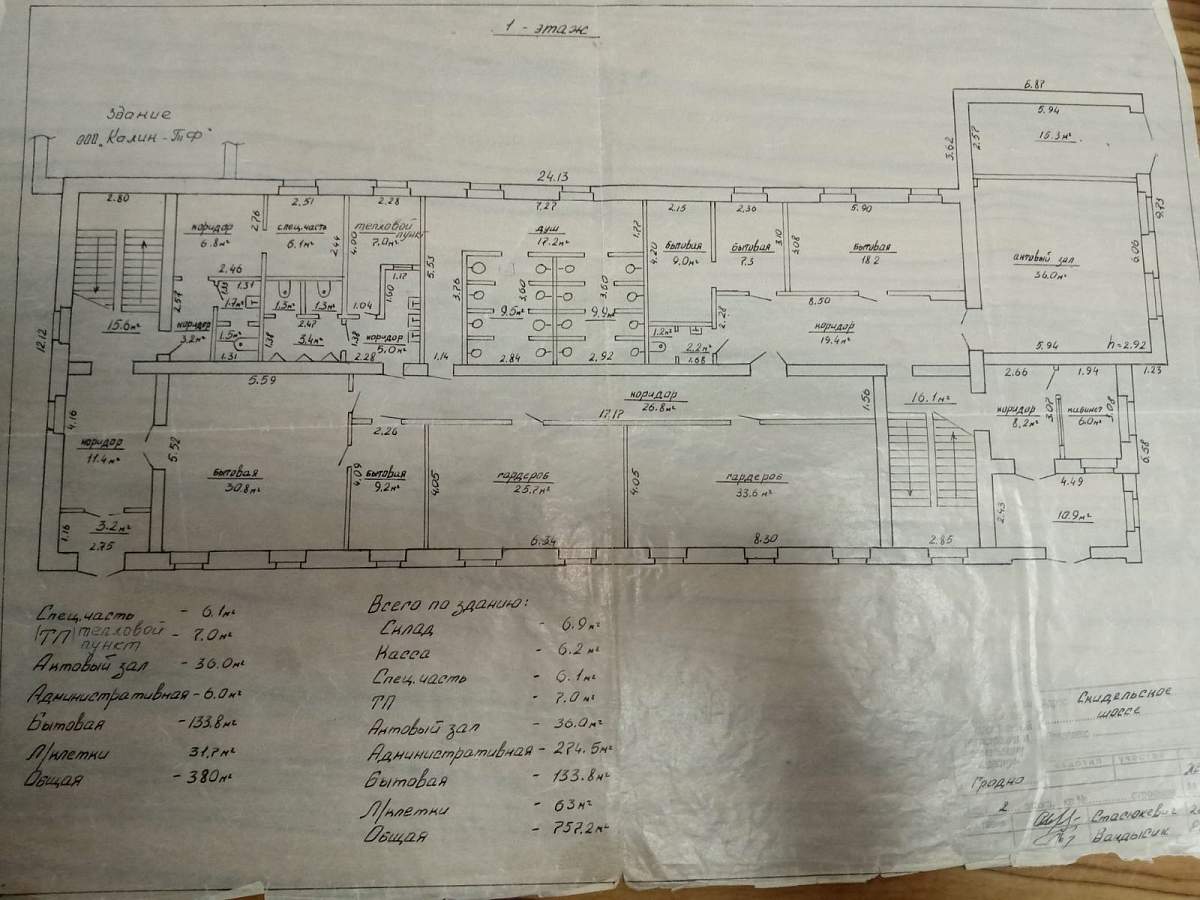 1 - этаж
Здание
ООО „Калин-ТФ"
6.87
5.94
15.3м²
2.57
3.62
24.13
2.80
2.51
2.28
7.27
2.15
2.36
5.90
9.73
коридор
6.8м²
2.76
спец.часть
6.1м²
2.44
4.00
тепловой
пункт
7.0м²
5.53
душ
17.2м²
1.77
4.20
бытовая
9.0м²
бытовая
7.3
3.10
3.08
бытовая
18.2
актовый зал
36.0м²
6.06
2.46
1.31
1.17
1.60
3.76
3.60
3.60
8.50
2.57
1.7м²
1.3м²
1.3м²
1.04
9.5м²
9.9м²
2.28
коридор
19.4м²
12.12
15.6м²
коридор
3.2м²
1.5м²
2.47
3.4м²
1.38
1.38
коридор
5.0м²
1.2м²
2.2м²
1.31
2.28
1.14
2.84
2.92
1.68
5.94
h=2.92
5.59
2.66
1.94
1.23
4.16
5.52
коридор
26.8м²
17.17
1.56
16.1м²
коридор
8.2м²
3.07
кабинет
6.0м²
3.08
коридор
11.4м²
2.26
6.58
бытовая
30.8м²
4.09
бытовая
9.2м²
4.05
гардероб
25.7м²
4.05
гардероб
33.6м²
4.49
2.43
10.9м²
1.16
3.2м²
2.75
6.34
8.30
2.85
Спец.часть - 6.1м²
(ТП) тепловой пункт - 7.0м²
Актовый зал - 36.0м²
Административная - 6.0м²
Бытовая - 133.8м²
Л/клетки 31.7м²
Общая - 380м²
Всего по зданию:
Склад - 6.9м²
Касса - 6.2м²
Спец.часть - 6.1м²
ТП - 7.0м²
Актовый зал - 36.0м²
Административная - 274.5м²
Бытовая - 133.8м²
Л/клетки - 63м²
Общая - 757.2м²
Скидельское
шоссе
Гродно
2
Стасюкевич
Вандысик